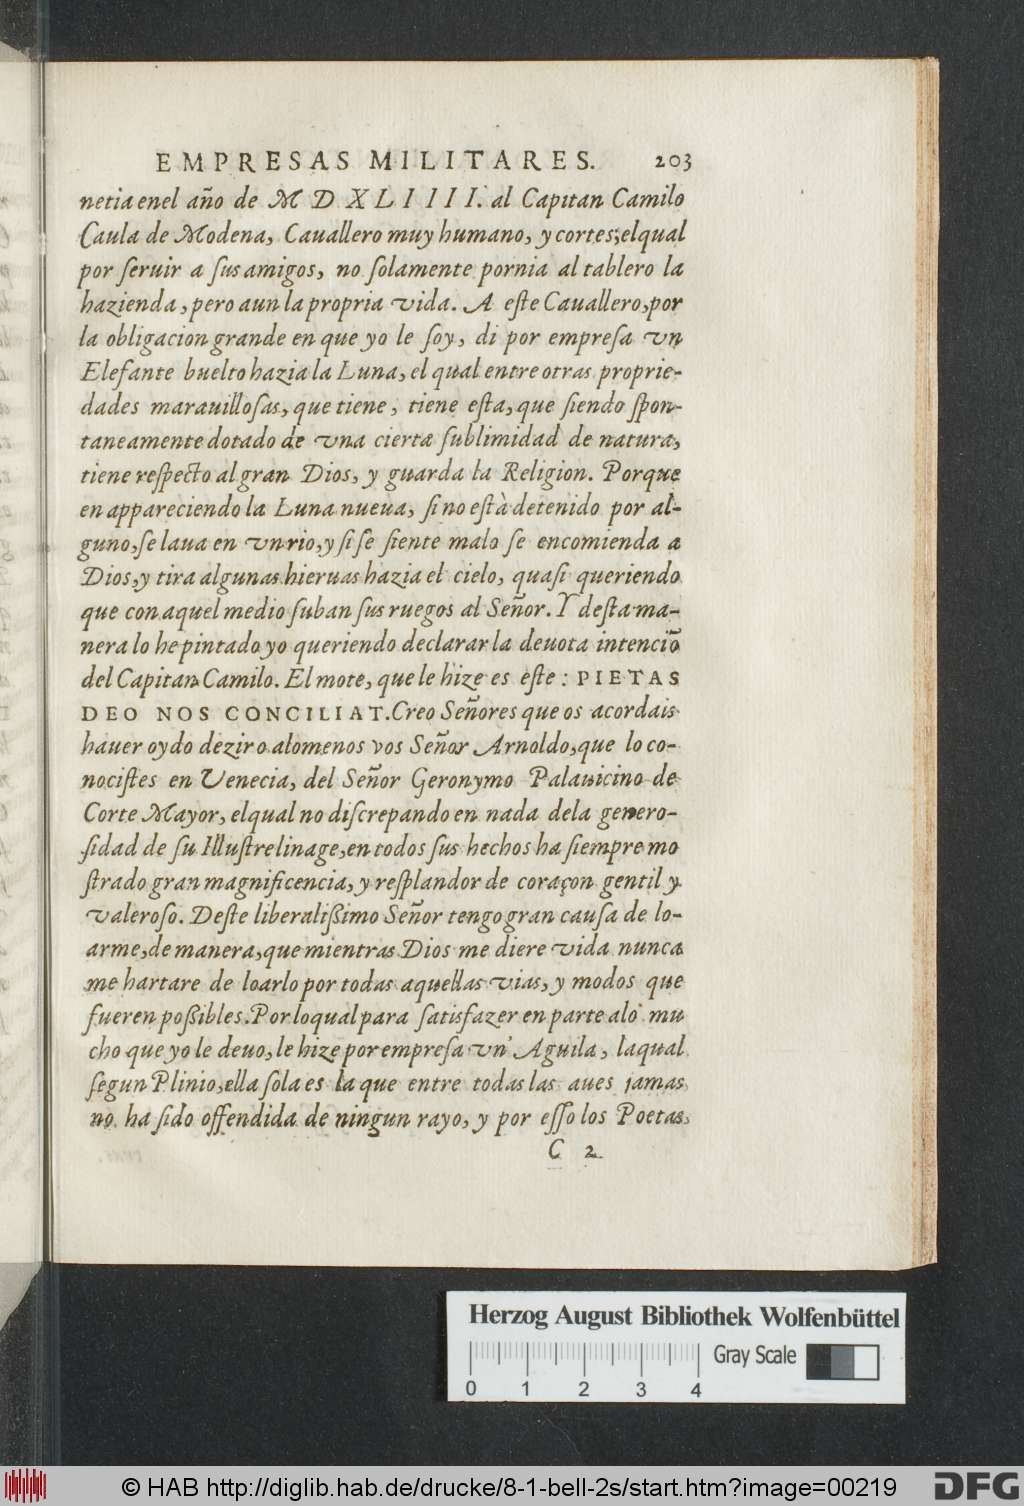 EMPRESAS MILITARES. 203
netia enel año de M D X L I I I I. al Capitan Camilo
Caula de Modena, Cauallero muy humano, y cortes; elqual
por ſeruir a ſus amigos, no ſolamente pornia al tablero la
hazienda, pero aun la propria vida. A eſte Cauallero, por
la obligacion grande en que yo le ſoy, di por empreſa vn
Elefante buelto hazia la Luna, el qual entre otras proprie-
dades marauilloſas, que tiene, tiene eſta, que ſiendo ſpon-
taneamente dotado de vna cierta ſublimidad de natura,
tiene reſpecto al gran Dios, y guarda la Religion. Porque
en appareciendo la Luna nueua, ſi no eſtà detenido por al-
guno, ſe laua en vn rio, y ſi ſe ſiente malo ſe encomienda a
Dios, y tira algunas hieruas hazia el cielo, quaſi queriendo
que con aquel medio ſuban ſus ruegos al Señor. Y deſta ma-
nera lo he pintado yo queriendo declarar la deuota intenciõ
del Capitan Camilo. El mote, que le hize es eſte: PIETAS
DEO NOS CONCILIAT. Creo Señores que os acordais
hauer oydo dezir o alomenos vos Señor Arnoldo, que lo co-
nociſtes en Venecia, del Señor Geronymo Palauicino de
Corte Mayor, elqual no diſcrepando en nada dela genero-
ſidad de ſu Illuſtre linage, en todos ſus hechos ha ſiempre mo
ſtrado gran magnificencia, y reſplandor de coraçon gentil y
valeroſo. Deſte liberalißimo Señor tengo gran cauſa de lo-
arme, de manera, que mientras Dios me diere vida nunca
me hartare de loarlo por todas aquellas vias, y modos que
fueren poßibles. Por loqual para ſatisfazer en parte alo mu
cho que yo le deuo, le hize por empreſa vn' Aguila, laqual
ſegun Plinio, ella ſola es la que entre todas las aues jamas
no ha ſido offendida de ningun rayo, y por eſſo los Poetas
C 2
Herzog August Bibliothek Wolfenbüttel
Gray Scale
0 1 2 3 4
© HAB http://diglib.hab.de/drucke/8-1-bell-2s/start.htm?image=00219
DFG